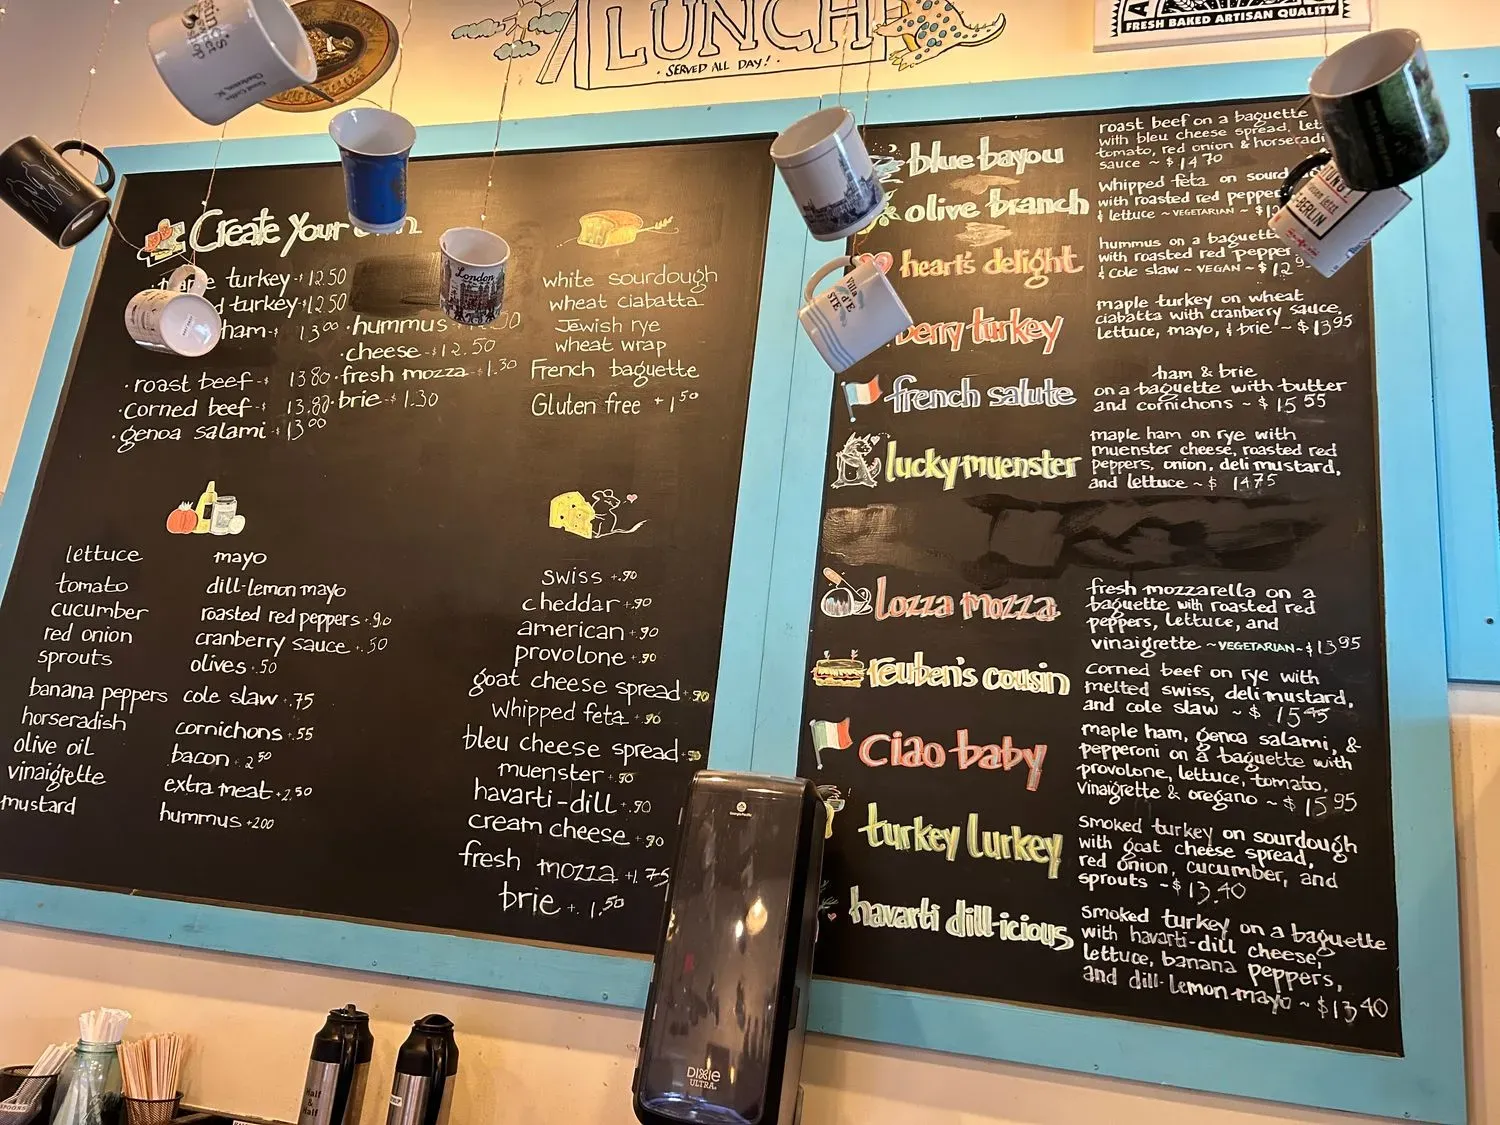 LUNCH
· SERVED ALL DAY! ·
FRESH BAKED ARTISAN QUALITY
London
Villa
d'E
STE
BERLIN
Create Your
turkey - $ 12.50
turkey - $ 12.50
ham - $ 13⁰⁰
· roast beef - $ 13 80
· corned beef - $ 13.80
· genoa salami - $ 13⁰⁰
· hummus
· cheese - $ 12.50
· fresh mozza - $ 1.30
· brie - $ 1.30
white sourdough
wheat ciabatta
Jewish rye
wheat wrap
French baguette
Gluten free + 1⁵⁰
lettuce
tomato
cucumber
red onion
sprouts
banana peppers
horseradish
olive oil
vinaigrette
mustard
mayo
dill-lemon mayo
roasted red peppers + .90
cranberry sauce + .50
olives + .50
cole slaw + .75
cornichons + .55
bacon + 2⁵⁰
extra meat + 2.50
hummus + 2.00
swiss + .90
cheddar + .90
american + .90
provolone + .90
goat cheese spread + .90
whipped feta + .90
bleu cheese spread + .90
muenster + .90
havarti-dill + .90
cream cheese + .90
fresh mozza + 1.75
brie + 1.50
blue bayou
roast beef on a baguette
with bleu cheese spread,
tomato, red onion &
sauce ~ $ 14 70
olive branch
whipped feta on
with roasted red pepper
& lettuce ~ VEGETARIAN ~
heart's delight
hummus on a baguette
with roasted red pepper
& cole slaw ~ VEGAN ~ $ 12
berry turkey
maple turkey on wheat
ciabatta with cranberry sauce,
lettuce, mayo, & brie ~ $ 13 95
french salute
ham & brie
on a baguette with butter
and cornichons ~ $ 15 55
lucky muenster
maple ham on rye with
muenster cheese, roasted red
peppers, onion, deli mustard,
and lettuce ~ $ 14 75
lozza mozza
fresh mozzarella on a
baguette with roasted red
peppers, lettuce, and
vinaigrette ~ VEGETARIAN ~ $ 13 95
reuben's cousin
corned beef on rye with
melted swiss, deli mustard,
and cole slaw ~ $ 15 45
ciao baby
maple ham, genoa salami, &
pepperoni on a baguette with
provolone, lettuce, tomato,
vinaigrette & oregano ~ $ 15 95
turkey lurkey
smoked turkey on sourdough
with goat cheese spread,
red onion, cucumber, and
sprouts ~ $ 13.40
havarti dill-icious
smoked turkey on a baguette
with havarti-dill cheese,
lettuce, banana peppers,
and dill-lemon mayo ~ $ 13 40
Georgia-Pacific
DIXIE
ULTRA
Half
&
Half
SPOONS